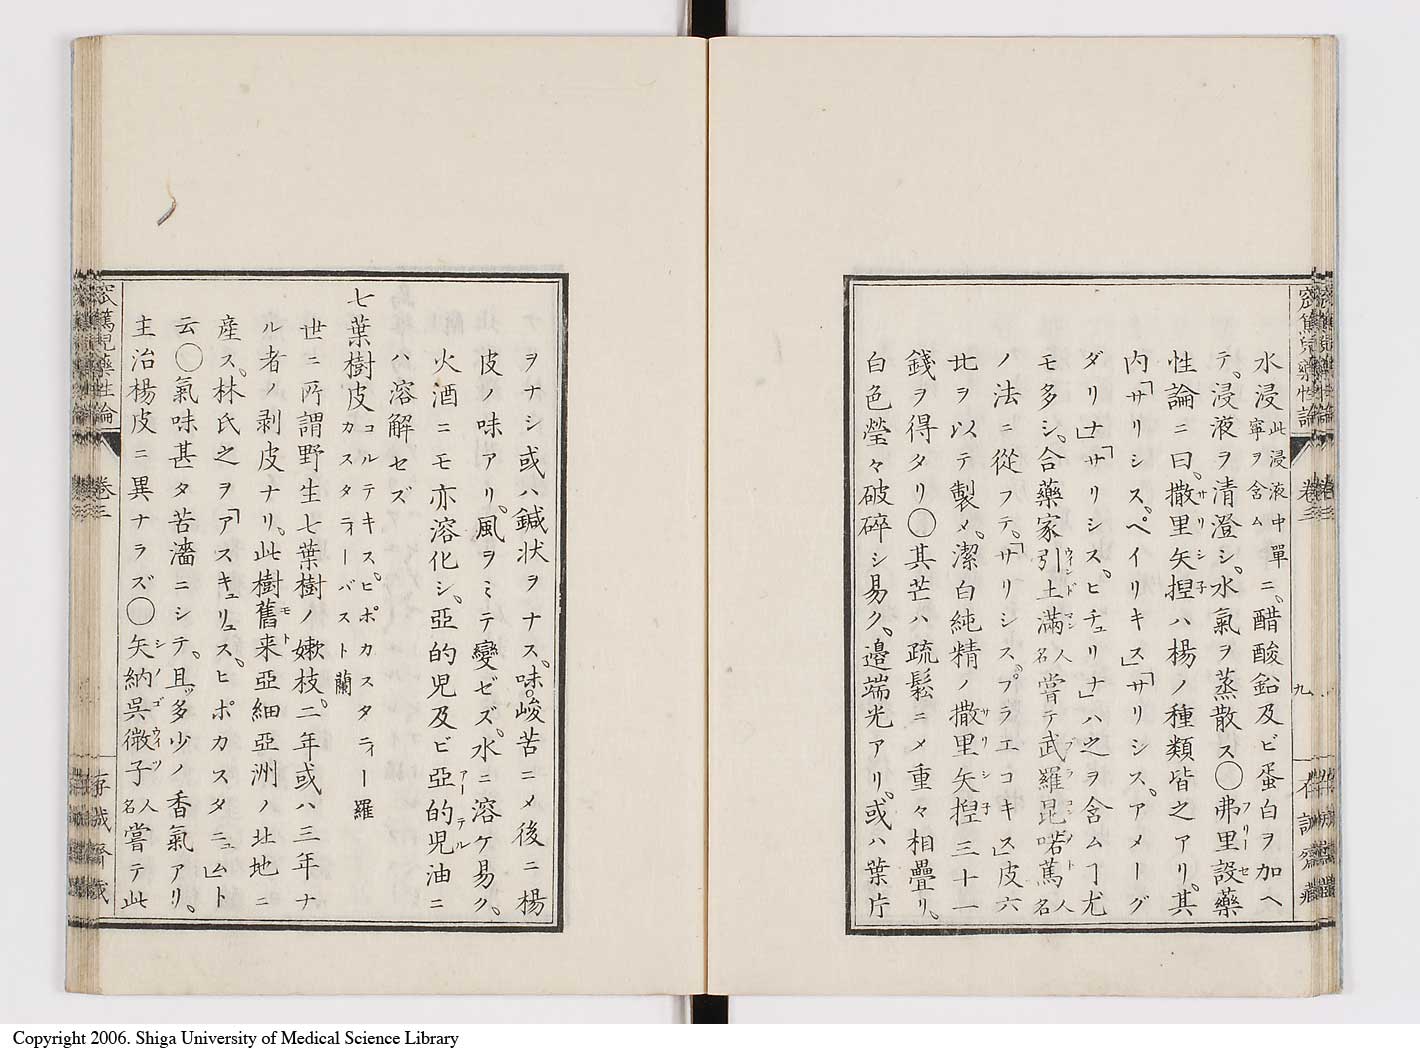 窊篤児藥性論
卷三
九
存誠齋蔵
水浸此浸液中單寧ヲ含ムニ醋酸鉛及ビ蛋白ヲ加ヘ
テ、浸液ヲ清澄シ、水氣ヲ蒸散ス〇弗里設藥フリーセ
性論ニ曰、撒里矢揑サリシ子ハ楊ノ種類皆之アリ。其
内「サリシス、ペイリキス」「サリシス、アメーグ
ダリナ」「サリシス、ヒチュリナ」ハ之ヲ含ムヿ尤
モ多シ、合藥家引土滿ウインドマン人名嘗テ武羅昆喏篤ブラコンノト人名
ノ法ニ從フテ、「サリシス、プラエコキス」皮六
十ヲ以テ製メ、潔白純精ノ撒里矢揑サリシ子三十一
錢ヲ得タリ〇其芒ハ疏鬆ニメ重々相疊リ、
白色瑩々破碎シ易ク、邉端光アリ、或ハ葉片
ヲナシ或ハ鍼状ヲナス、味峻苦ニメ後ニ楊
皮ノ味アリ、風ヲミテ變ゼズ、水ニ溶ケ易ク、
火酒ニモ亦溶化シ、亞的児及ビ亞的児アーテル油ニ
ハ溶解セズ
七葉樹皮コルテキス、ヒポカスタニー羅カスタニーバスト蘭
世ニ所謂野生七葉樹ノ嫰枝、二年或ハ三年ナ
ル者ノ剥皮ナリ。此樹舊来モト亞細亞洲ノ北地ニ
産ス、林氏之ヲ「アスキュリュス、ヒポカスタニュム」ト
云〇氣味甚タ苦濇ニシテ、且ツ多少ノ香氣アリ、
主治楊皮ニ異ナラズ〇矢納呉微子シノゴウイツ人名嘗テ此
窊篤児藥性論
卷三
存誠齋蔵
Copyright 2006. Shiga University of Medical Science Library